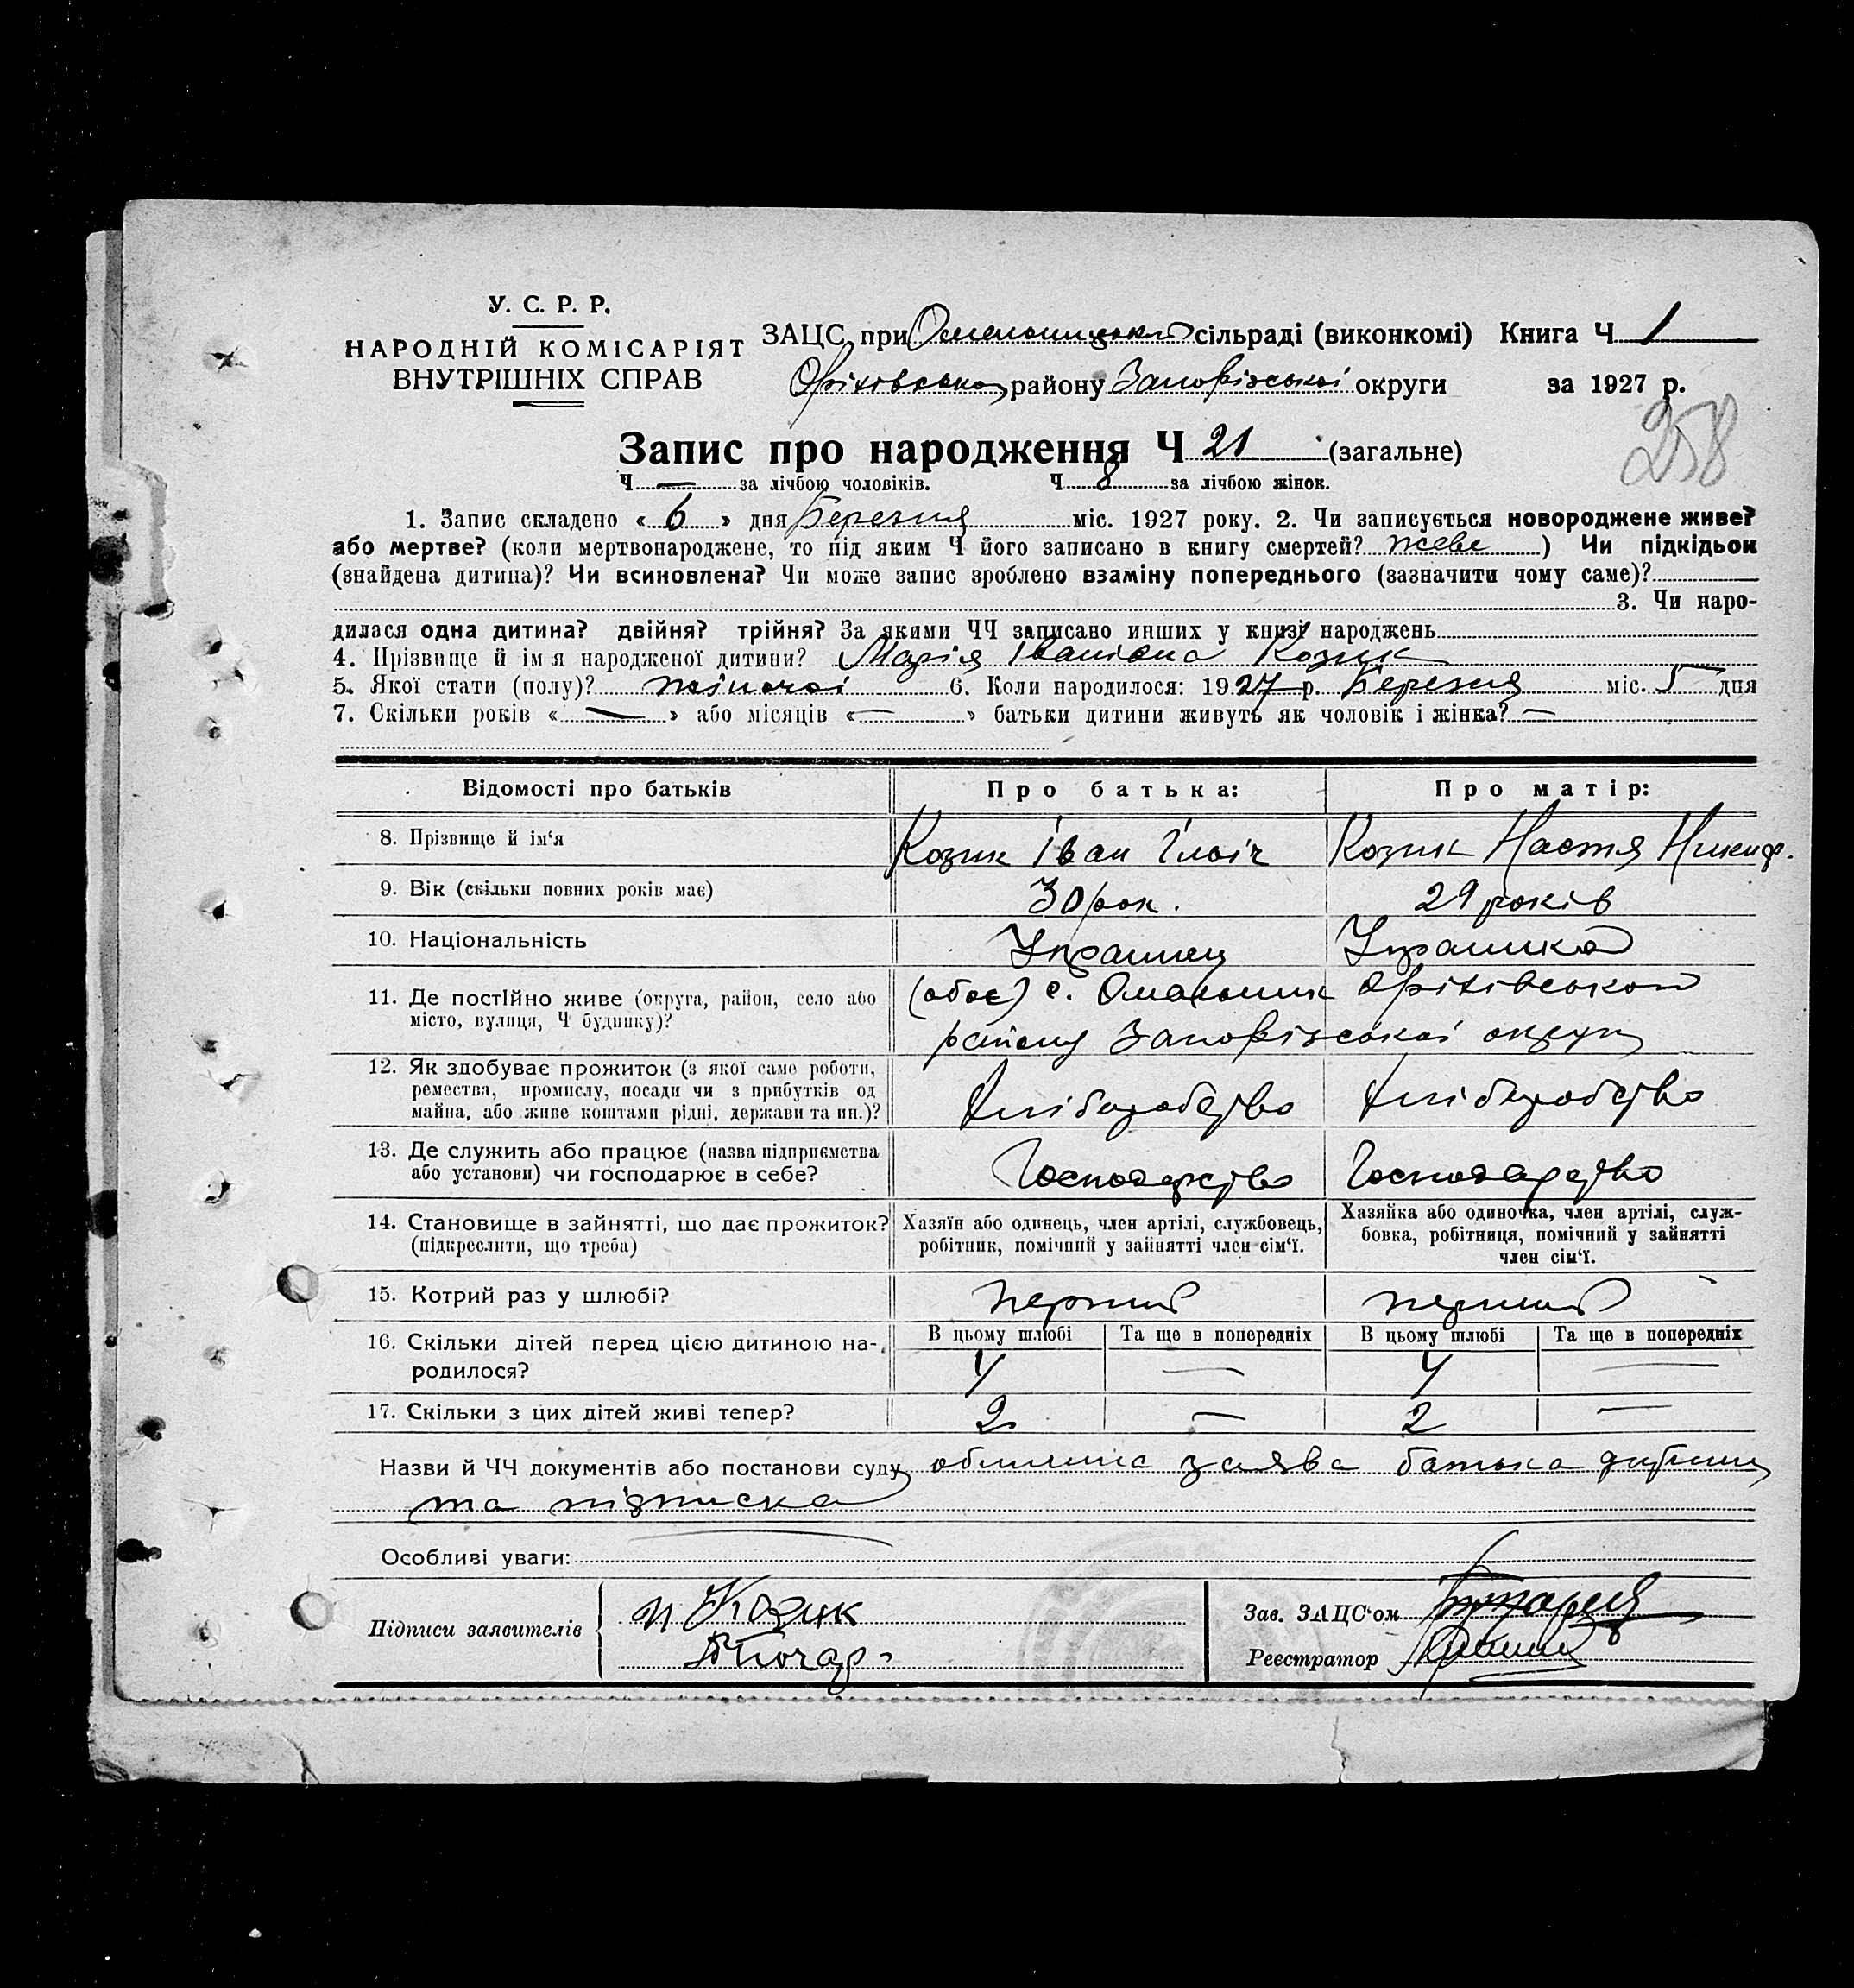 У. С. Р. Р.
НАРОДНІЙ КОМІСАРІЯТ
ВНУТРІШНІХ СПРАВ
ЗАЦС при Омельницькій сільраді (виконкомі) Книга Ч 1
Оріхівськ району Запорізської округи за 1927 р.
258
Запис про народження Ч 21 (загальне)
Ч — за лічбою чоловіків. Ч 8 за лічбою жінок.
1. Запис складено « 6 » дня Березня міс. 1927 року. 2. Чи записується новороджене живе?
або мертве? (коли мертвонароджене, то під яким Ч його записано в книгу смертей? живе ) Чи підкідьок
(знайдена дитина)? Чи всиновлена? Чи може запис зроблено взаміну попереднього (зазначити чому саме)?
3. Чи наро-
дилася одна дитина? двійня? трійня? За якими ЧЧ записано инших у книзі народжень
4. Прізвище й ім'я народженої дитини? Марія Іванівна Козик
5. Якої стати (полу)? жіночої 6. Коли народилося: 1927 р. Березня міс. 5 дня
7. Скільки років « — » або місяців « — » батьки дитини живуть як чоловік і жінка? —
Відомості про батьків Про батька: Про матір:
8. Прізвище й ім'я Козик Іван Ільіч Козик Настя Никиф.
9. Вік (скільки повних років має) 30 рок. 29 років
10. Національність Українец Українка
11. Де постІйно живе (округа, район, село або (обоє) с. Омельник Оріхівського
місто, вулиця, Ч будинку)? району Запорізської округи
12. Як здобуває прожиток (з якої саме роботи,
ремества, промислу, посади чи з прибутків од
майна, або живе коштами рідні, держави та ин.)? Хліборобство Хліборобство
13. Де служить або працює (назва підприємства
або установи) чи господарює в себе? Господарство Господарство
14. Становище в зайнятті, що дає прожиток? Хазяїн або одинець, член артілі, службовець, Хазяйка або одиночка, член артілі, служ-
(підкреслити, що треба) робітник, помічний у зайнятті член сім'ї. бовка, робітниця, помічний у зайнятті
член сім'ї.
15. Котрий раз у шлюбі? перший перший
16. Скільки дітей перед цією дитиною на- В цьому шлюбі Та ще в попередніх В цьому шлюбі Та ще в попередніх
родилося? 4 — 4 —
17. Скільки з цих дітей живі тепер? 2 — 2 —
Назви й ЧЧ документів або постанови суду заява батька дитини
та підписка
Особливі уваги:
Підписи заявителів И Козик
Зав. ЗАЦС'ом
Реєстратор